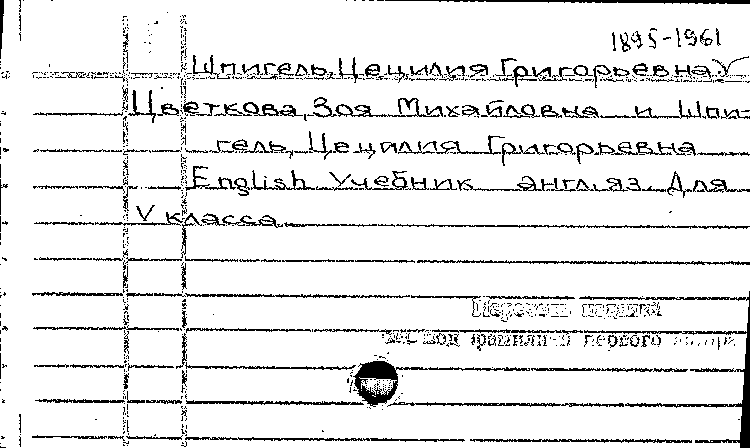 1895-1961
Шпигель, Цецилия Григорьевна
Цветкова, Зоя Михайловна и Шпи-
гель, Цецилия Григорьевна
English Учебник англ. яз. Для
V класса.
под фамилией первого